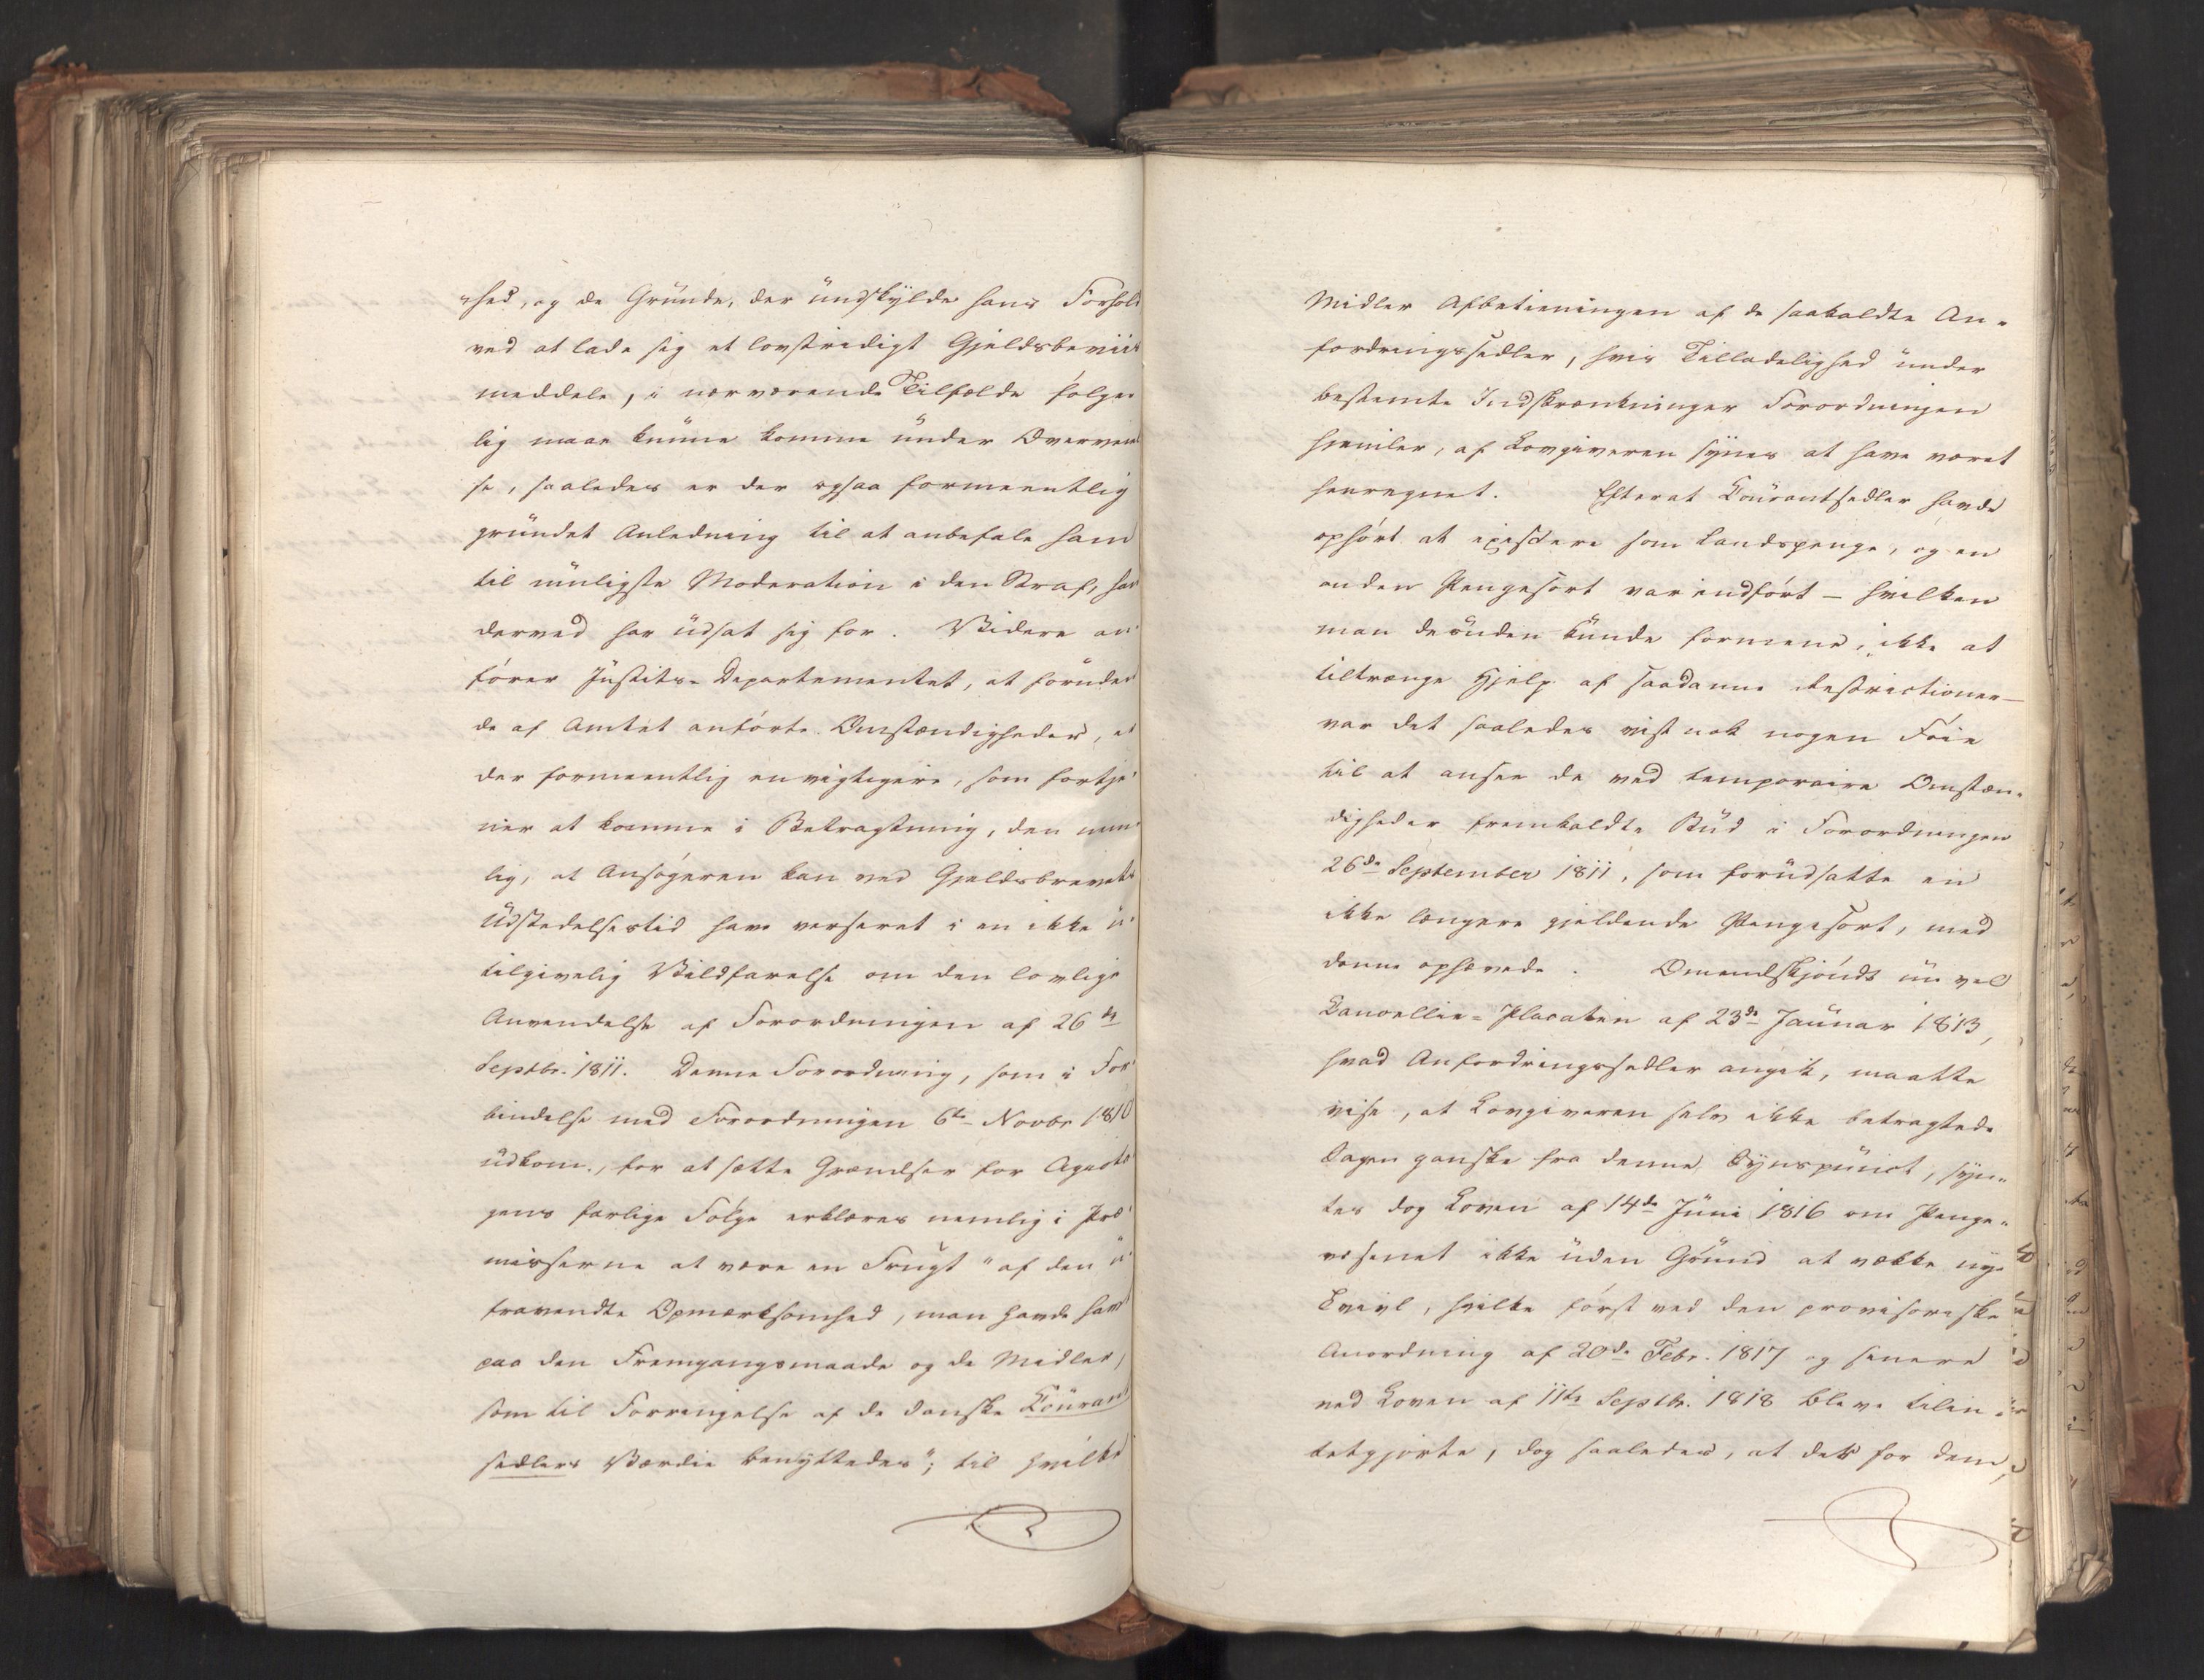 -hed, og de Grunde, der undskylde hans Forhold
ved at lade sig et lovstridigt Gjeldsbeviis
meddele, i nærværende Tilfælde følge-
lig maae kunne komme under Overveiel-
se, saaledes er der ogsaa formeentlig
grundet Anledning til at anbefale ham
til muligste Moderation i den Straf, han
derved har udsat sig for. Videre an-
fører Justits-Departementet, at foruden
de af Amtet anførte Omstændigheder, er
der formeentlig en vigtigere, som fortje-
ner at komme i Betragtning, den nem-
lig, at Ansøgeren kan ved Gjeldsbrevets
Udstedelsestid have verseret i en ikke u-
tilgivelig Vildfarelse om den lovlige
Anvendelse af Forordningen af 26de
Septbr. 1811. Denne Forordning, som i For-
bindelse med Forordningen 6te Novbr 1810
udkom, for at sætte Grændser for Agiota-
gens farlige Følge erklæres nemlig i Præ-
misserne at være en Frugt "af den u-
fravendte Opmærksomhed, man havde havt
paa den Fremgangsmaade og de Midler,
som til Forringelse af de danske Courant
sedlers Værdie benyttedes"; til hvilke
Midler Afbetieningen af de saakaldte An-
fordringssedler, hvis Tilladelighed under
bestemte Indskrænkninger Forordningen
hjemler, af Lovgiveren synes at have været
henregnet. Efterat Courantsedler havde
ophørt at existere som Landspenge, og en
anden Pengesort var indført – hvilken
man desuden kunde formene, ikke at
tiltrænge Hjelp af saadanne Restrictioner –
var det saaledes vist nok nogen Føie
til at ansee de ved temporaire Omstæn-
digheder fremkaldte Bud i Forordningen
26de September 1811, som forudsatte en
ikke længere gjeldende Pengesort, med
denne ophævede. Omendskjøndt nu vel
Cancellie-Placaten af 23de Januar 1813,
hvad Anfordringssedler angik, maatte
vise, at Lovgiveren selv ikke betragtede
Sagen ganske fra denne Synspunct, syn-
tes dog Loven af 14de Juni 1816 om Penge-
væsenet ikke uden Grund at vække nye
Tvivl, hvilke først ved den provisoriske
Anordning af 20de Febr. 1817 og senere
ved Loven af 11te Septbr. 1818 bleve tilin-
tetgjorte, dog saaledes, at det for dem,